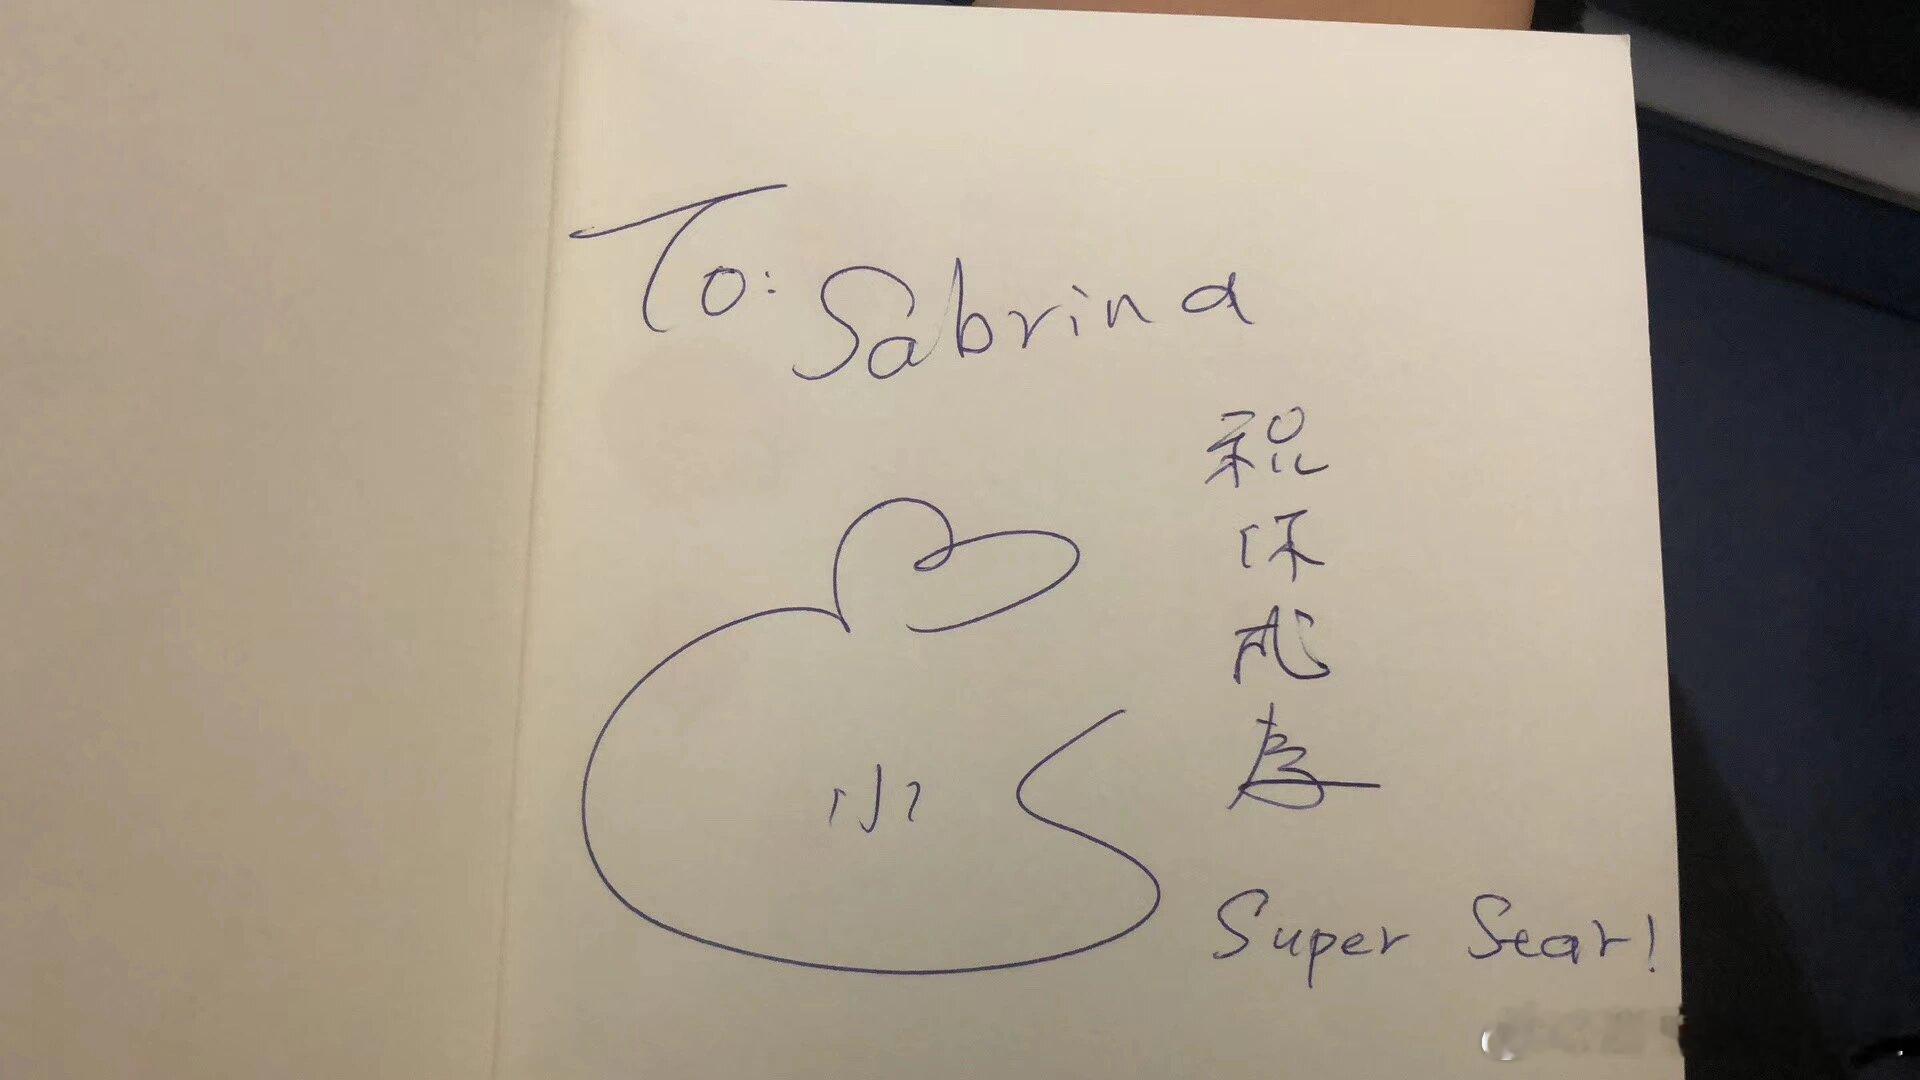 To: Sabrina
祝你成为
Super Star!
小